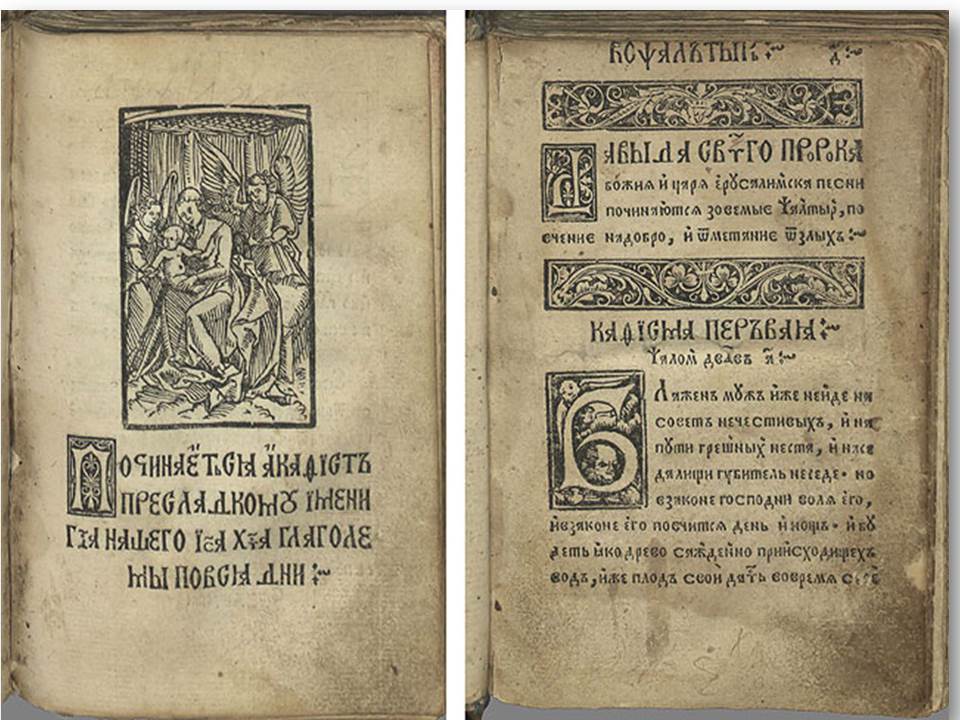 ПОЧИНАЕТЬСІА АКАѲІСТЪ
ПРЕСЛАДКОМУ ІМЕНИ
ГДА НАШЕГО ІСА ХТА ГЛАГОЛЕ
МЫ ПОВСІА ДНИ
ДАВЫДА СВТГО ПРОРОКА
божия и царя ерусалимска песни
починяются зовемые Ѱалтыр, по
ечение надобро, и ѿметание ѿзлыхъ
КАѲІСМА ПЕРЪВАІА
Ѱалом деавъ а
Блаженъ мужъ иже нейде на
советъ нечестивыхъ, и на
пути грешных неста, и насе
далищи губитель неседе. но
взаконе господни воля его,
ивзаконе его поучится день и нощъ. и бу
деть яко древо саждейно приисходищехъ
водъ, иже плодъ свой дасть вовремя